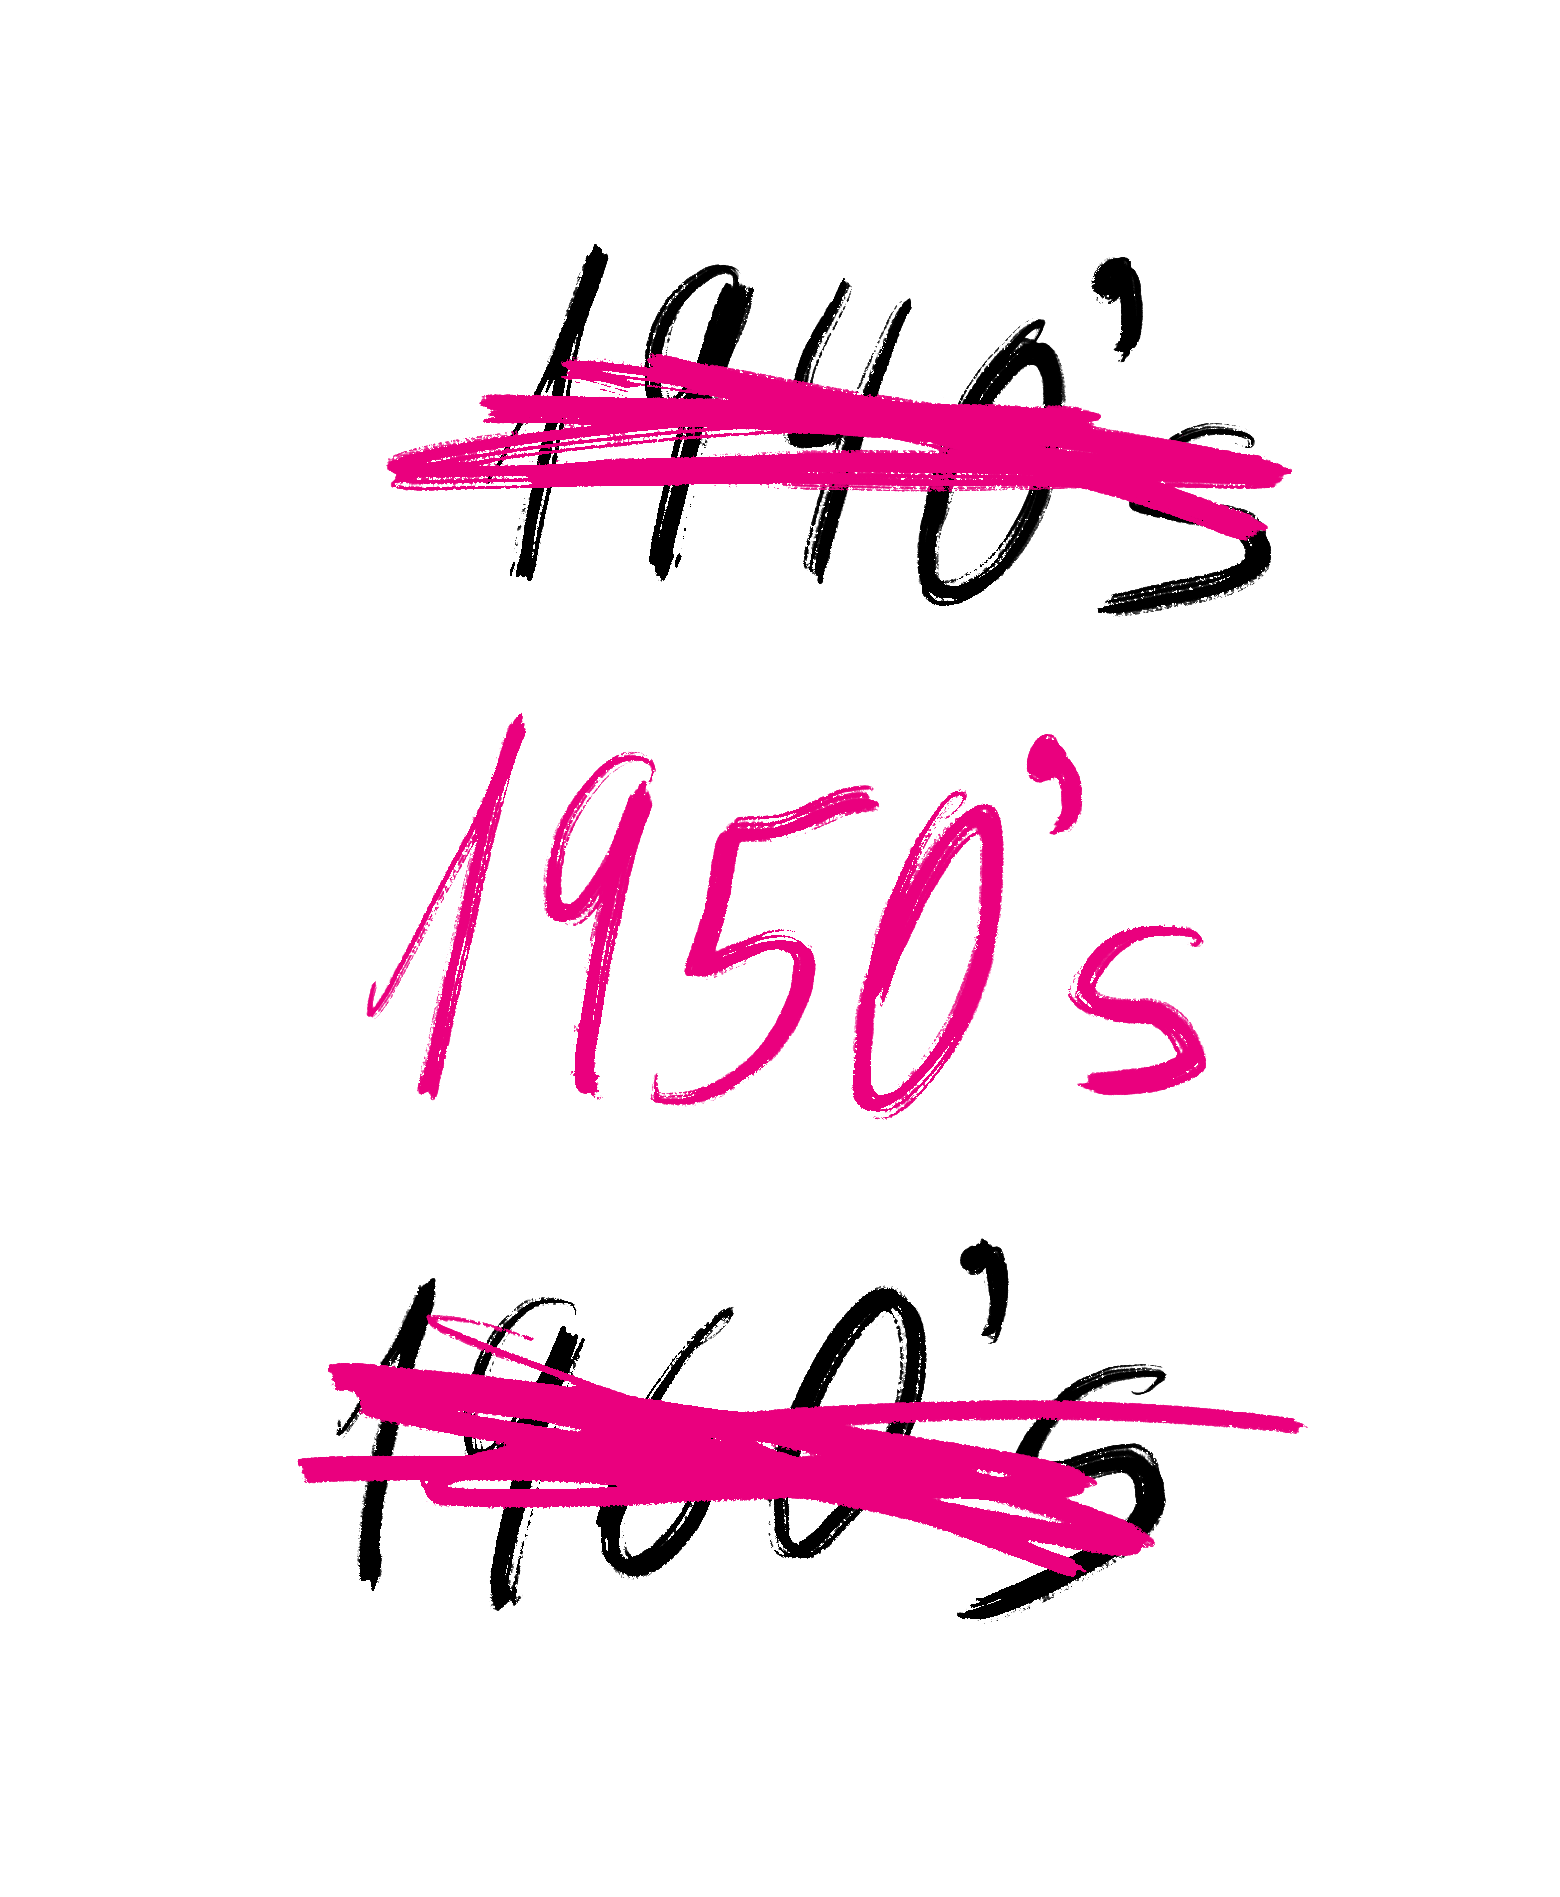 1940's
1950's
1960's